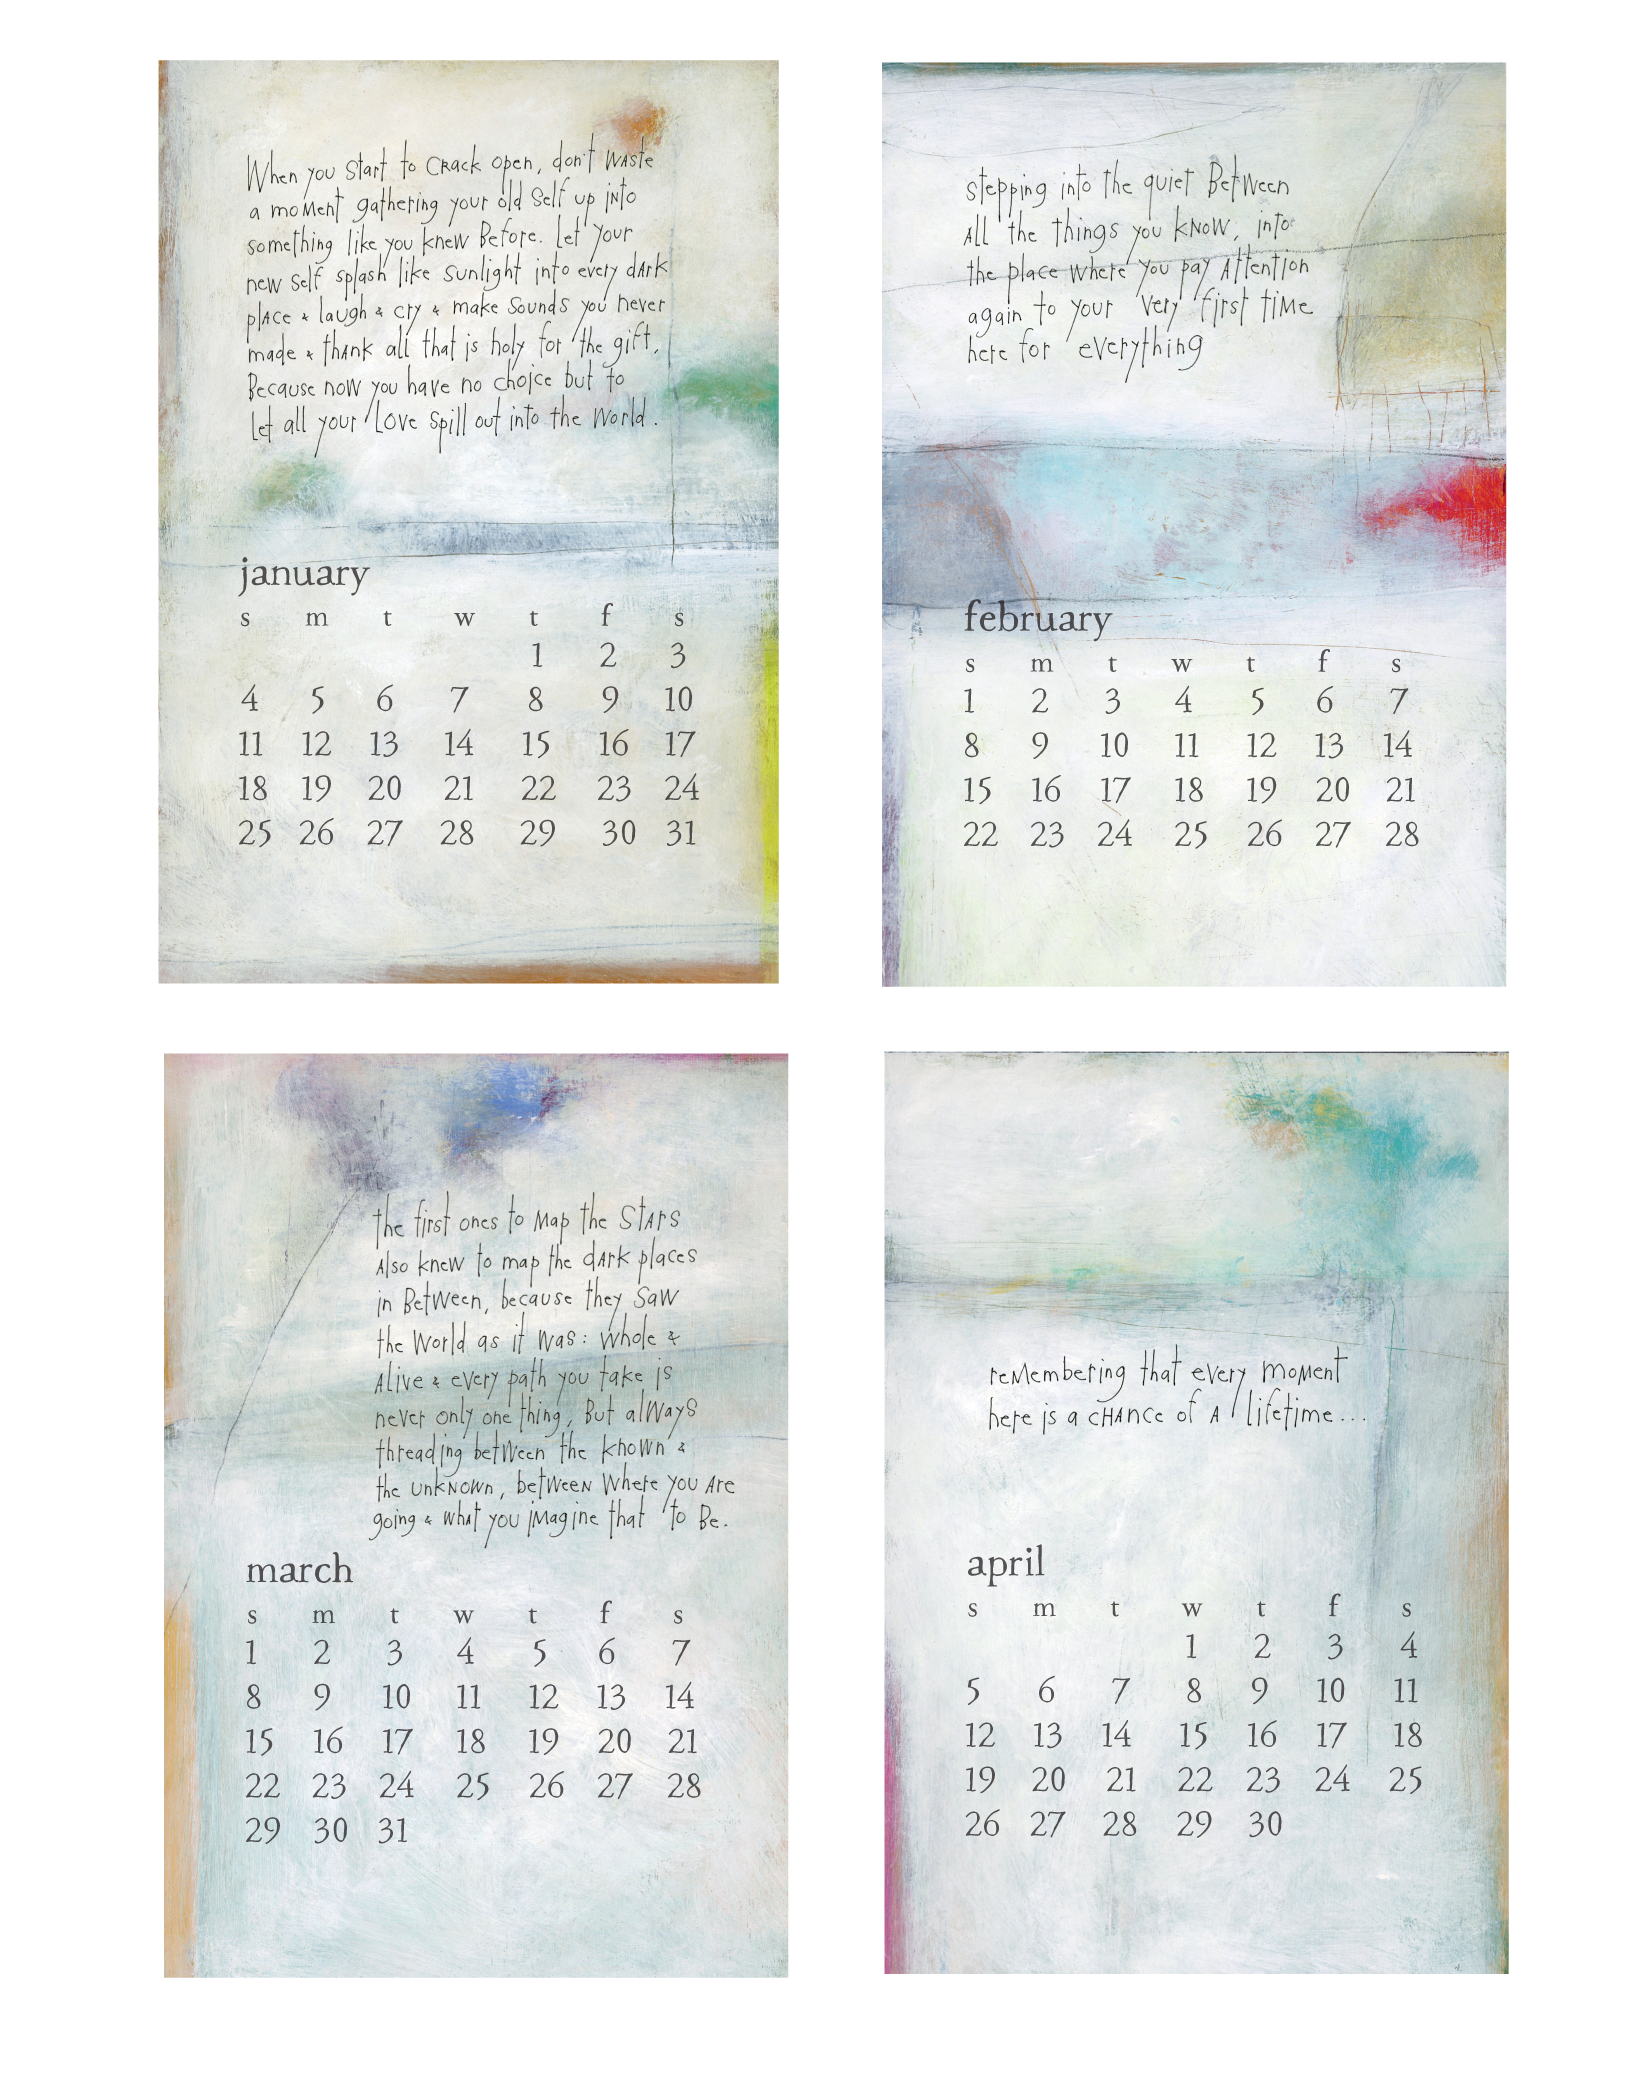 When you start to crack open, don't waste
a moment gathering your old self up into
something like you knew before. Let your
new self splash like sunlight into every dark
place & laugh & cry & make sounds you never
made & thank all that is holy for the gift,
because now you have no choice but to
let all your love spill out into the world.
january
s m t w t f s
1 2 3
4 5 6 7 8 9 10
11 12 13 14 15 16 17
18 19 20 21 22 23 24
25 26 27 28 29 30 31
stepping into the quiet between
all the things you know, into
the place where you pay attention
again to your very first time
here for everything
february
s m t w t f s
1 2 3 4 5 6 7
8 9 10 11 12 13 14
15 16 17 18 19 20 21
22 23 24 25 26 27 28
the first ones to map the stars
also knew to map the dark places
in between, because they saw
the world as it was: whole &
alive & every path you take is
never only one thing, but always
threading between the known &
the unknown, between where you are
going & what you imagine that to be.
march
s m t w t f s
1 2 3 4 5 6 7
8 9 10 11 12 13 14
15 16 17 18 19 20 21
22 23 24 25 26 27 28
29 30 31
remembering that every moment
here is a chance of a lifetime...
april
s m t w t f s
1 2 3 4
5 6 7 8 9 10 11
12 13 14 15 16 17 18
19 20 21 22 23 24 25
26 27 28 29 30